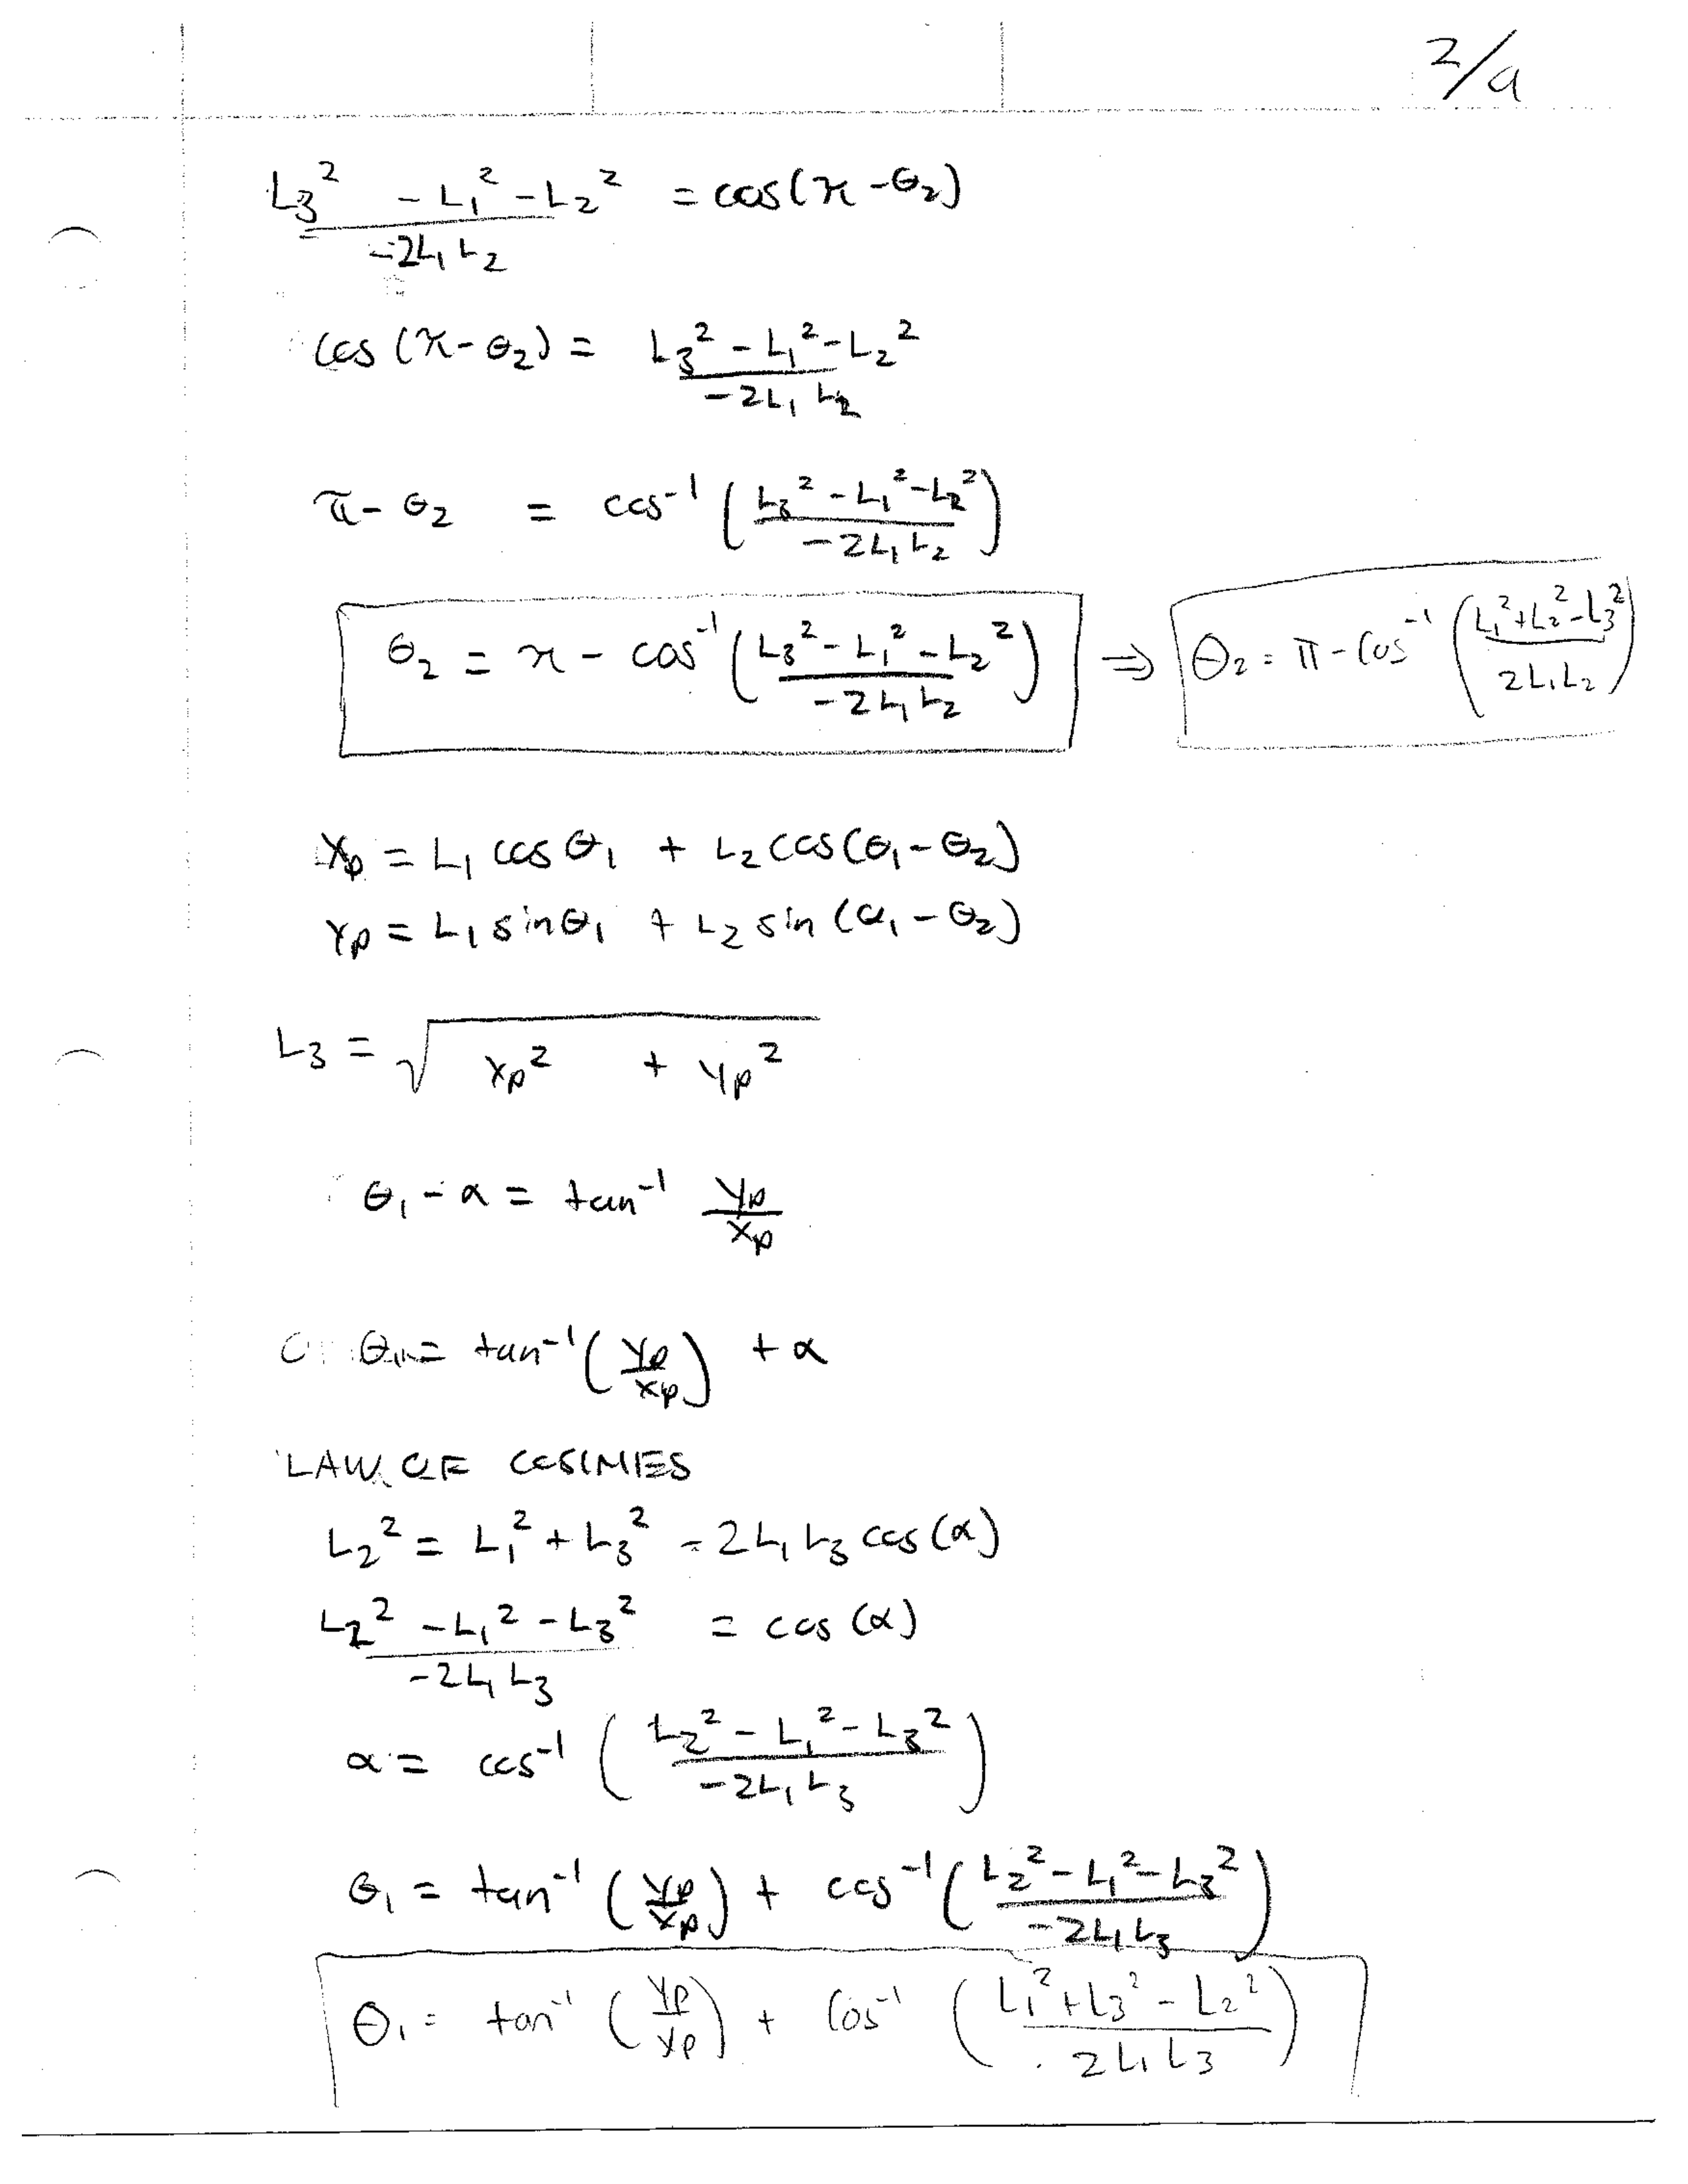 2/9
L₃² - L₁² - L₂² / -2L₁L₂ = cos(π - θ₂)
cos(π - θ₂) = L₃² - L₁² - L₂² / -2L₁L₂
π - θ₂ = cos⁻¹ (L₃² - L₁² - L₂² / -2L₁L₂)
θ₂ = π - cos⁻¹ (L₃² - L₁² - L₂² / -2L₁L₂) ⇒ θ₂ = π - Cos⁻¹ (L₁² + L₂² - L₃² / 2L₁L₂)
Xp = L₁ cos θ₁ + L₂ cos(θ₁ - θ₂)
Yp = L₁ sin θ₁ + L₂ sin (θ₁ - θ₂)
L₃ = √(Xp² + Yp²)
θ₁ - α = tan⁻¹ Yp / Xp
θ₁ = tan⁻¹ (Yp / Xp) + α
LAW OF COSINES
L₂² = L₁² + L₃² - 2L₁L₃ cos(α)
L₂² - L₁² - L₃² / -2L₁L₃ = cos (α)
α = cos⁻¹ (L₂² - L₁² - L₃² / -2L₁L₃)
θ₁ = tan⁻¹ (Yp / Xp) + cos⁻¹ (L₂² - L₁² - L₃² / -2L₁L₃)
θ₁ = tan⁻¹ (Yp / Xp) + Cos⁻¹ (L₁² + L₃² - L₂² / 2L₁L₃)